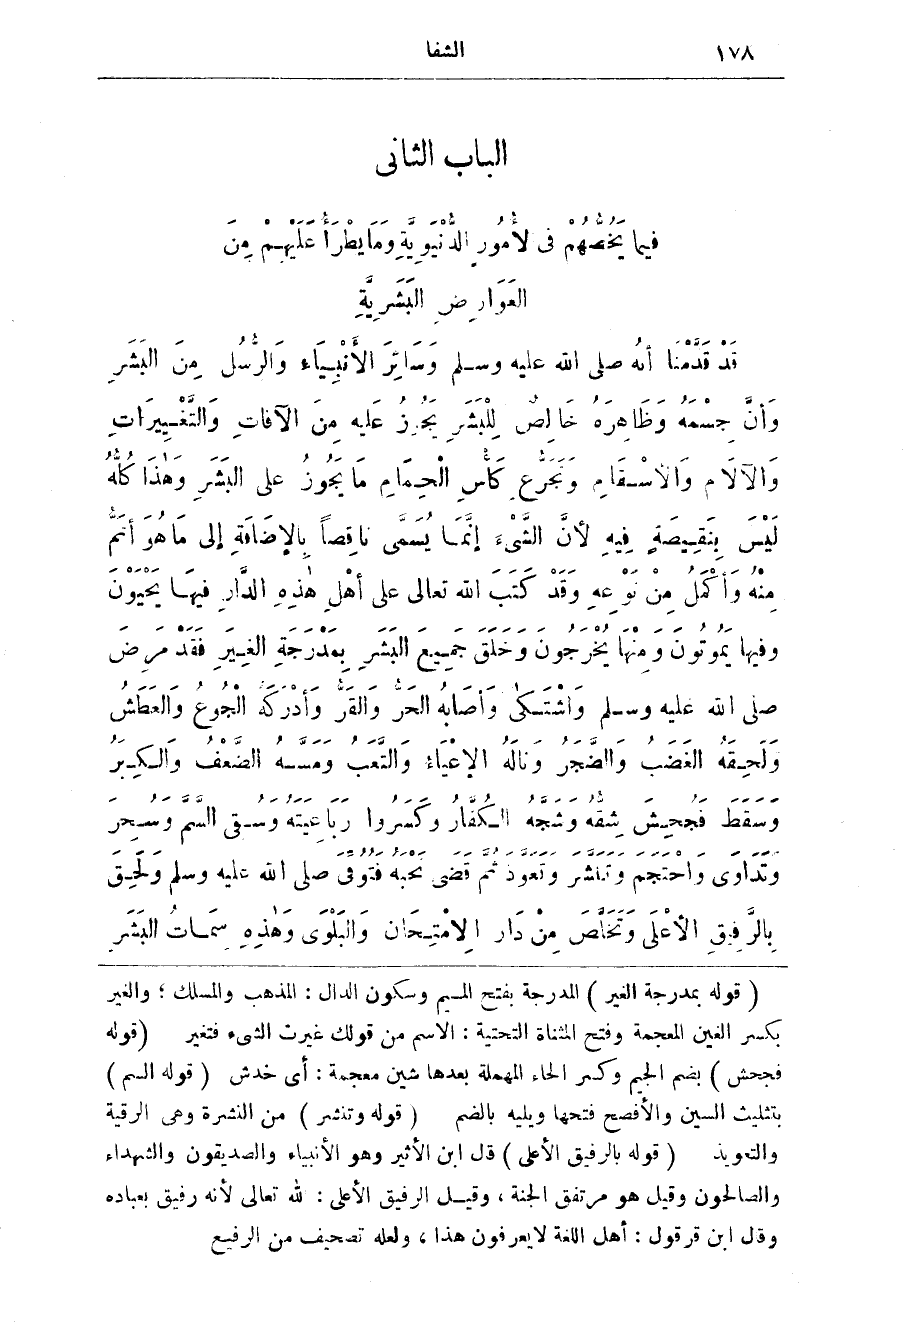 ١٧٨
الشفا
الباب الثانى
فيما يَخُصُّهُمْ فى الأُمُورِ الدُّنْيَوِيَّةِ وَمَا يَطْرَأُ عَلَيْهِمْ مِنَ
العَوَارِضِ البَشَرِيَّةِ
قَدْ قَدَّمْنَا أنهُ صلى الله عليه وسلم وَسَائِرَ الأَنْبِيَاءِ وَالرُّسُلِ مِنَ البَشَرِ
وَأنَّ جِسْمَهُ وَظَاهِرَهُ خَالِصٌ لِلْبَشَرِ يَجُوزُ عَلَيهِ مِنَ الآفَاتِ وَالتَّغْيِيرَاتِ
وَالآلَامِ وَالأسْقَامِ وَتَجَرُّعِ كَأسِ الْحِمَامِ مَا يَجُوزُ على البَشَرِ وَهٰذَا كُلُّهُ
لَيْسَ بِنَقِيصَةٍ فِيهِ لأنَّ الشَّىْءَ إنَّمَا يُسَمَّى نَاقِصاً بِالإضَافَةِ إلى مَا هُوَ أتَمُّ
مِنْهُ وَأكْمَلُ مِنْ نَوْعِهِ وَقَدْ كَتَبَ الله تعالى على أهْلِ هٰذِهِ الدَّارِ فِيهَا يَحْيَوْنَ
وفيها يَمُوتُونَ وَمِنْهَا يُخْرَجُونَ وَخَلَقَ جَمِيعَ البَشَرِ بِمَدْرَجَةِ الغِيَرِ فَقَدْ مَرِضَ
صلى الله عليه وسلم وَاشْتَكَى وَأصَابَهُ الحَرُّ وَالقَرُّ وَأدْرَكَهُ الْجُوعُ وَالعَطَشُ
وَلَحِقَهُ الغَضَبُ وَالضَّجَرُ وَنَالَهُ الإعْيَاءُ وَالتَّعَبُ وَمَسَّهُ الضَّعْفُ وَالكِبَرُ
وَسَقَطَ فَجُحِشَ شِقُّهُ وَشَجَّهُ الكُفَّارُ وَكَسَرُوا رَبَاعِيَتَهُ وَسُقِىَ السَّمَّ وَسُحِرَ
وَتَدَاوَى وَاحْتَجَمَ وَتَنَشَّرَ وَتَعَوَّذَ ثُمَّ قَضَى نَحْبَهُ فَتُوُفِّىَ صلى الله عليه وسلم وَلَحِقَ
بِالرَّفِيقِ الأعْلَى وَتَخَلَّصَ مِنْ دَارِ الِامْتِحَانِ وَالبَلْوَى وَهٰذِهِ سِمَاتُ البَشَرِ
( قوله بمدرجة الغير ) المدرجة بفتح الميم وسكون الدال : المذهب والمسلك ؛ والغير
بكسر الغين المعجمة وفتح المثناة التحتية : الاسم من قولك غيرت الشىء فتغير (قوله
فجحش ) بضم الجيم وكسر الحاء المهملة بعدها شين معجمة : أى خدش ( قوله السم )
بتثليث السين والأفصح فتحها ويليه بالضم ( قوله وتنشر ) من النشرة وهى الرقية
والتعويذ ( قوله بالرفيق الأعلى ) قال ابن الأثير وهو الأنبياء والصديقون والشهداء
والصالحون وقيل هو مرتفق الجنة ، وقيل الرفيق الأعلى : لله تعالى لأنه رفيق بعباده
وقال ابن قرقول : أهل اللغة لايعرفون هذا ، ولعله تصحيف من الرفيع